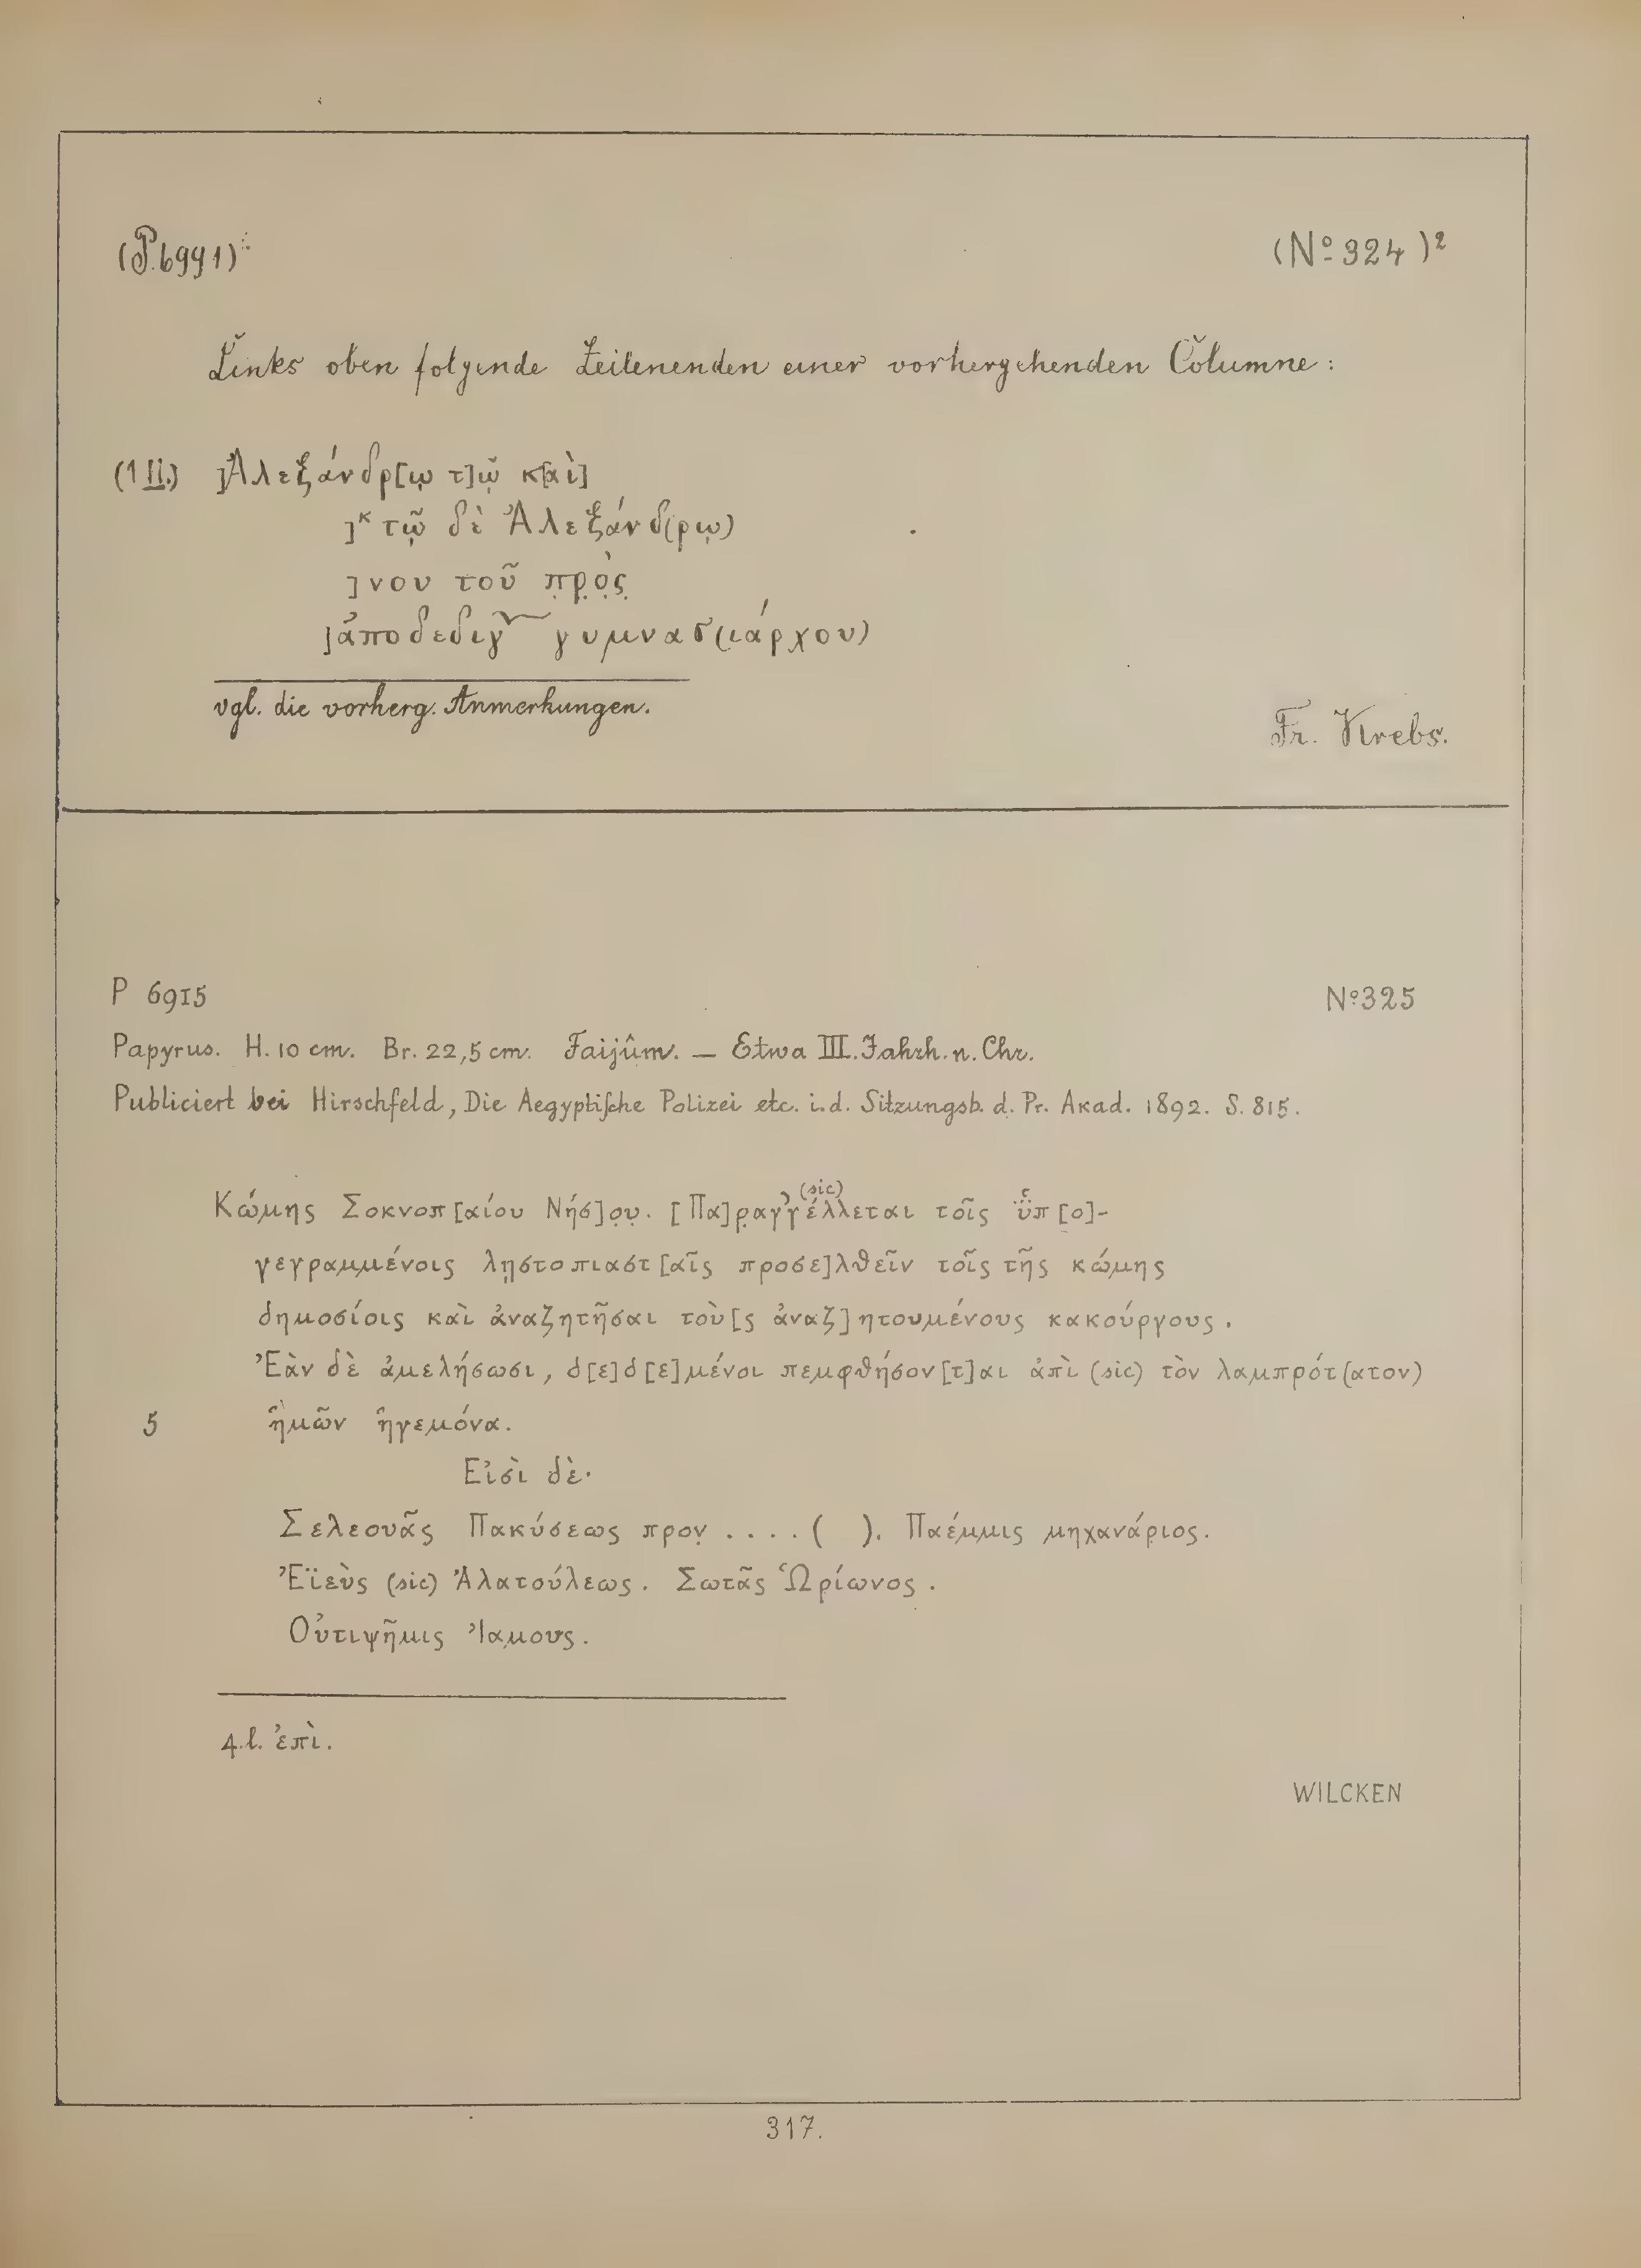 (P. 6991) (No 324)²
Links oben folgende Zeilenenden einer vorhergehenden Columne:
(1 II.) ]Ἀλεξάνδρ[ῳ τ]ῷ κ[αὶ]
]κ τῷ δὲ Ἀλεξάνδ(ρῳ)
]νου τοῦ π̣ρ̣ὸ̣ς̣
]ἀποδεδιγ γυμνασ(ιάρχου)
vgl. die vorherg. Anmerkungen.
Fr. Krebs.
P 6915 No 325
Papyrus. H. 10 cm. Br. 22,5 cm. Faijûm. — Etwa III. Jahrh. n. Chr.
Publiciert bei Hirschfeld, Die Aegyptische Polizei etc. i. d. Sitzungsb. d. Pr. Akad. 1892. S. 815.
Κώμης Σοκνοπ[αίου Νήσ]ο̣υ̣. [Πα]ρ̣αγ’γέλλεται (sic) τοῖς ὑ̈π[ο]-
γεγραμμένοις λῃστοπιαστ[αῖς προσε]λθεῖν τοῖς τῆς κώμης
δημοσίοις καὶ ἀναζητῆσαι τοὺ[ς ἀναζ]ητουμένους κακούργους.
Ἐὰν δὲ ἀμελήσωσι, δ[ε]δ[ε]μένοι πεμφθήσον[τ]αι ἀπὶ (sic) τὸν λαμπρότ(ατον)
5 ἡμῶν ἡγεμόνα.
Εἰσὶ δὲ·
Σελεουᾶς Πακύσεως προν̣ ....( ). Παέμμις μηχανάριος.
Ἐϊεὺς (sic) Ἀλατούλεως. Σωτᾶς Ὡρίωνος.
Οὐτιψῆμις Ἰαμους.
4. l. ἐπὶ.
WILCKEN
317.